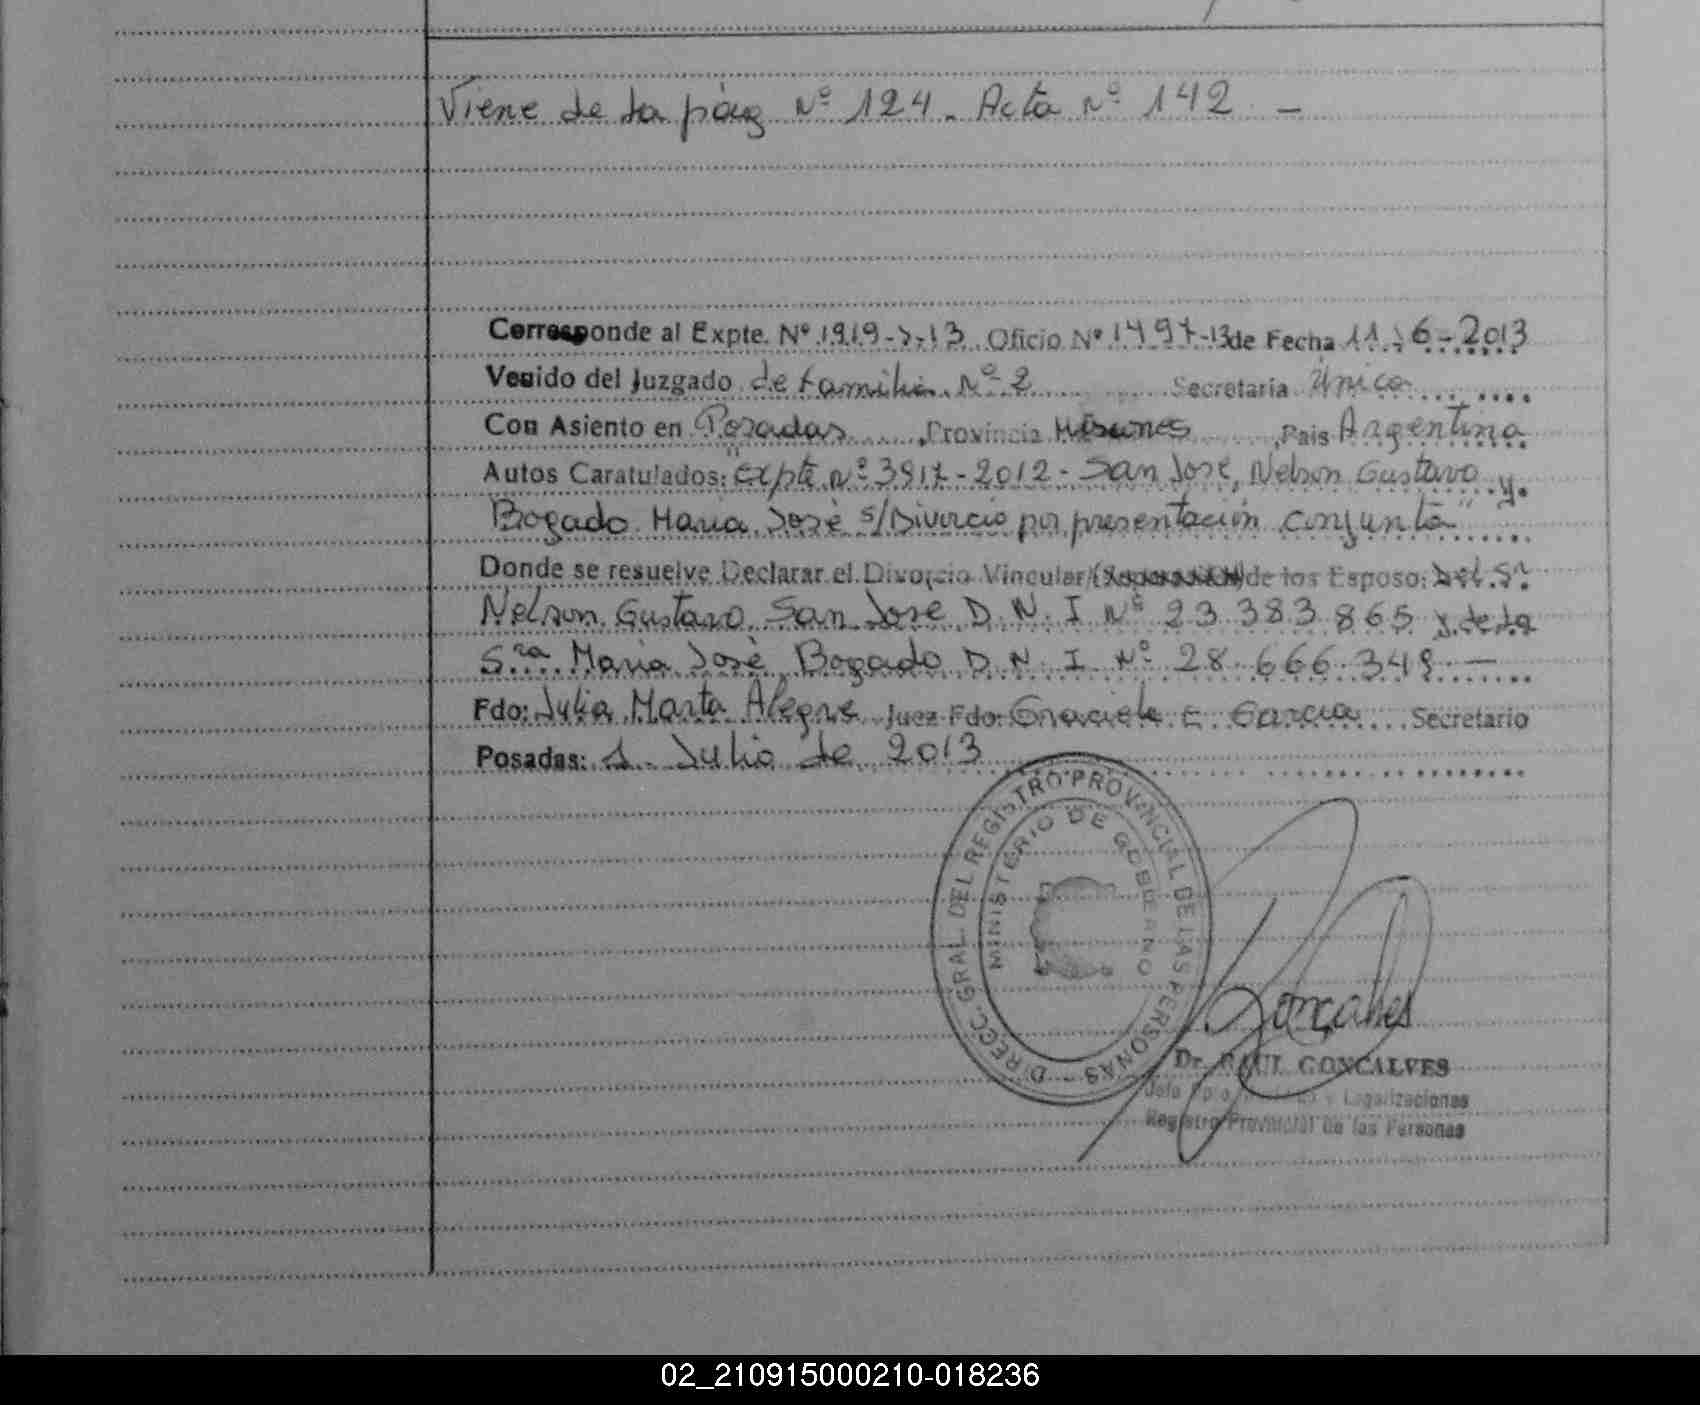 Viene de la pág Nº 124. Acta Nº 142 -
Corresponde al Expte. Nº 1919-J-13 Oficio Nº 1497-13 de Fecha 11-6-2013
Venido del Juzgado de Familia Nº 2 Secretaria Única
Con Asiento en Posadas, Provincia Misiones, Pais Argentina
Autos Caratulados: "Expte Nº 3917-2012- San José, Nelson Gustavo y
Bogado Maria José s/Divorcio por presentación conjunta"
Donde se resuelve Declarar el Divorcio Vincular/( ) de los Esposo: del Sr
Nelson Gustavo San José D.N.I Nº 23.383.865 y de la
Sra Maria José Bogado D.N.I Nº 28.666.349 -
Fdo: Julia Marta Alegre Juez Fdo: Graciela E. Garcia Secretario
Posadas: 1 Julio de 2013
DIRECC. GRAL. DEL REGISTRO PROVINCIAL DE LAS PERSONAS -
MINISTERIO DE GOBIERNO
Goncalves
Dr. RAUL GONCALVES
Jefe y Legalizaciones
Registro Provincial de las Personas
02_210915000210-018236